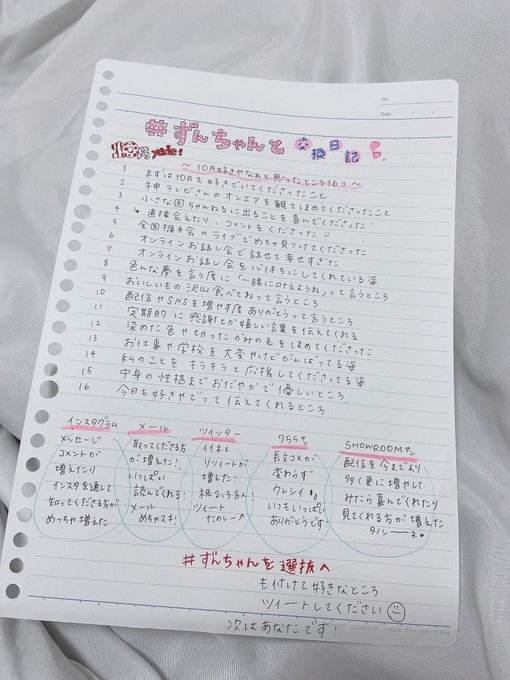 No.
Date
#ずんちゃんと 交換日記
〜10月好きやなぁと思ったところ16コ〜
1 まずは10月も好きでいてくださったこと
2 神テレビさんのオンエアを観てほめてくださったこと
3 小さな国ちゃんねるに出ることを喜んでくださった!
4 直接会えたり、コメントをくださったり
5 全国握手会のライブでめちゃ見つけてくださった
6 オンラインお話し会で話せて幸せすぎた
7 オンラインお話し会を心待ちにしてくれている姿
8 色んな夢を言う度に「一緒に叶えようね」って言うところ
9 おいしいもの沢山食べてねって言うところ
10 配信やSNSを増やす度ありがとうって言うところ
11 定期的に感謝とか嬉しい言葉を伝えてくれる
12 染めた色や切ったかみの毛をほめてくださった
13 お仕事や学校を大変やけどがんばってる姿
14 私のことをキラキラと応援してくださってる姿
15 中身の性格までおだやかで優しいところ
16 今日も好きやでって伝えてくれるところ
インスタグラム
メッセージ
コメントが
増えたり
インスタを通して
知ってくださる方が
めっちゃ増えた
メール
取ってくださる方
が増えた!
いっぱい
読んでくれる!
メール
めちゃスキ!
ツイッター
イイネと
リツイートが
増えた!
ツイート
たのしー
755サン
長文コメが
変わらず
ウレシイ
いつもいっぱい
ありがとうです!
SHOWROOMサン
配信を今までより
多く更に増やして
みたら喜んでくれたり
見てくれる方が増えた
タノシーーネ
#ずんちゃんを選抜へ
も付けて好きなところ
ツイートしてください
次はあなたです!